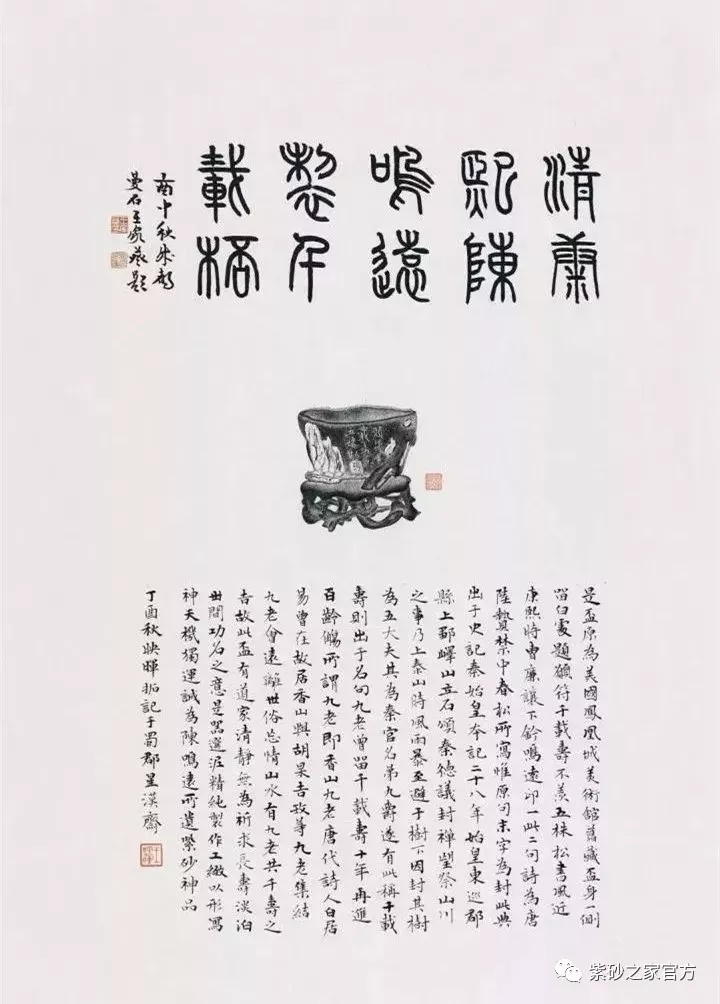 清康
熙陳
鳴遠
製千
載桮
酉中秋成都
曼石王家葵題
是盃原為美國鳳凰城美術館舊藏盃身一側
留白處題願符千載壽不羨五株松書風近
康熙時曹廉讓下鈐鳴遠印一此二句詩為唐
陸贄禁中春松所寫惟原句末字為封此典
出于史記秦始皇本記二十八年始皇東巡郡
縣上鄒嶧山立石頌秦德議封禪望祭山川
之事乃上泰山時風雨暴至避于樹下因封其樹
為五大夫其為秦官名第九爵遂有此稱千載
壽則出于名句九老曾留千載壽十年再進
百齡觴所謂九老即香山九老唐代詩人白居
易曾在故居香山與胡杲吉玫等九老集結
九老會遠離世俗忘情山水有九老共千壽之
吉故此盃有道家清靜無為祈求長壽淡泊
世間功名之意是器選泥精純製作工緻以形寫
神天機獨運誠為陳鳴遠所遺紫砂神品
丁酉秋映暉拓記于蜀郡星漢齋
紫砂之家官方